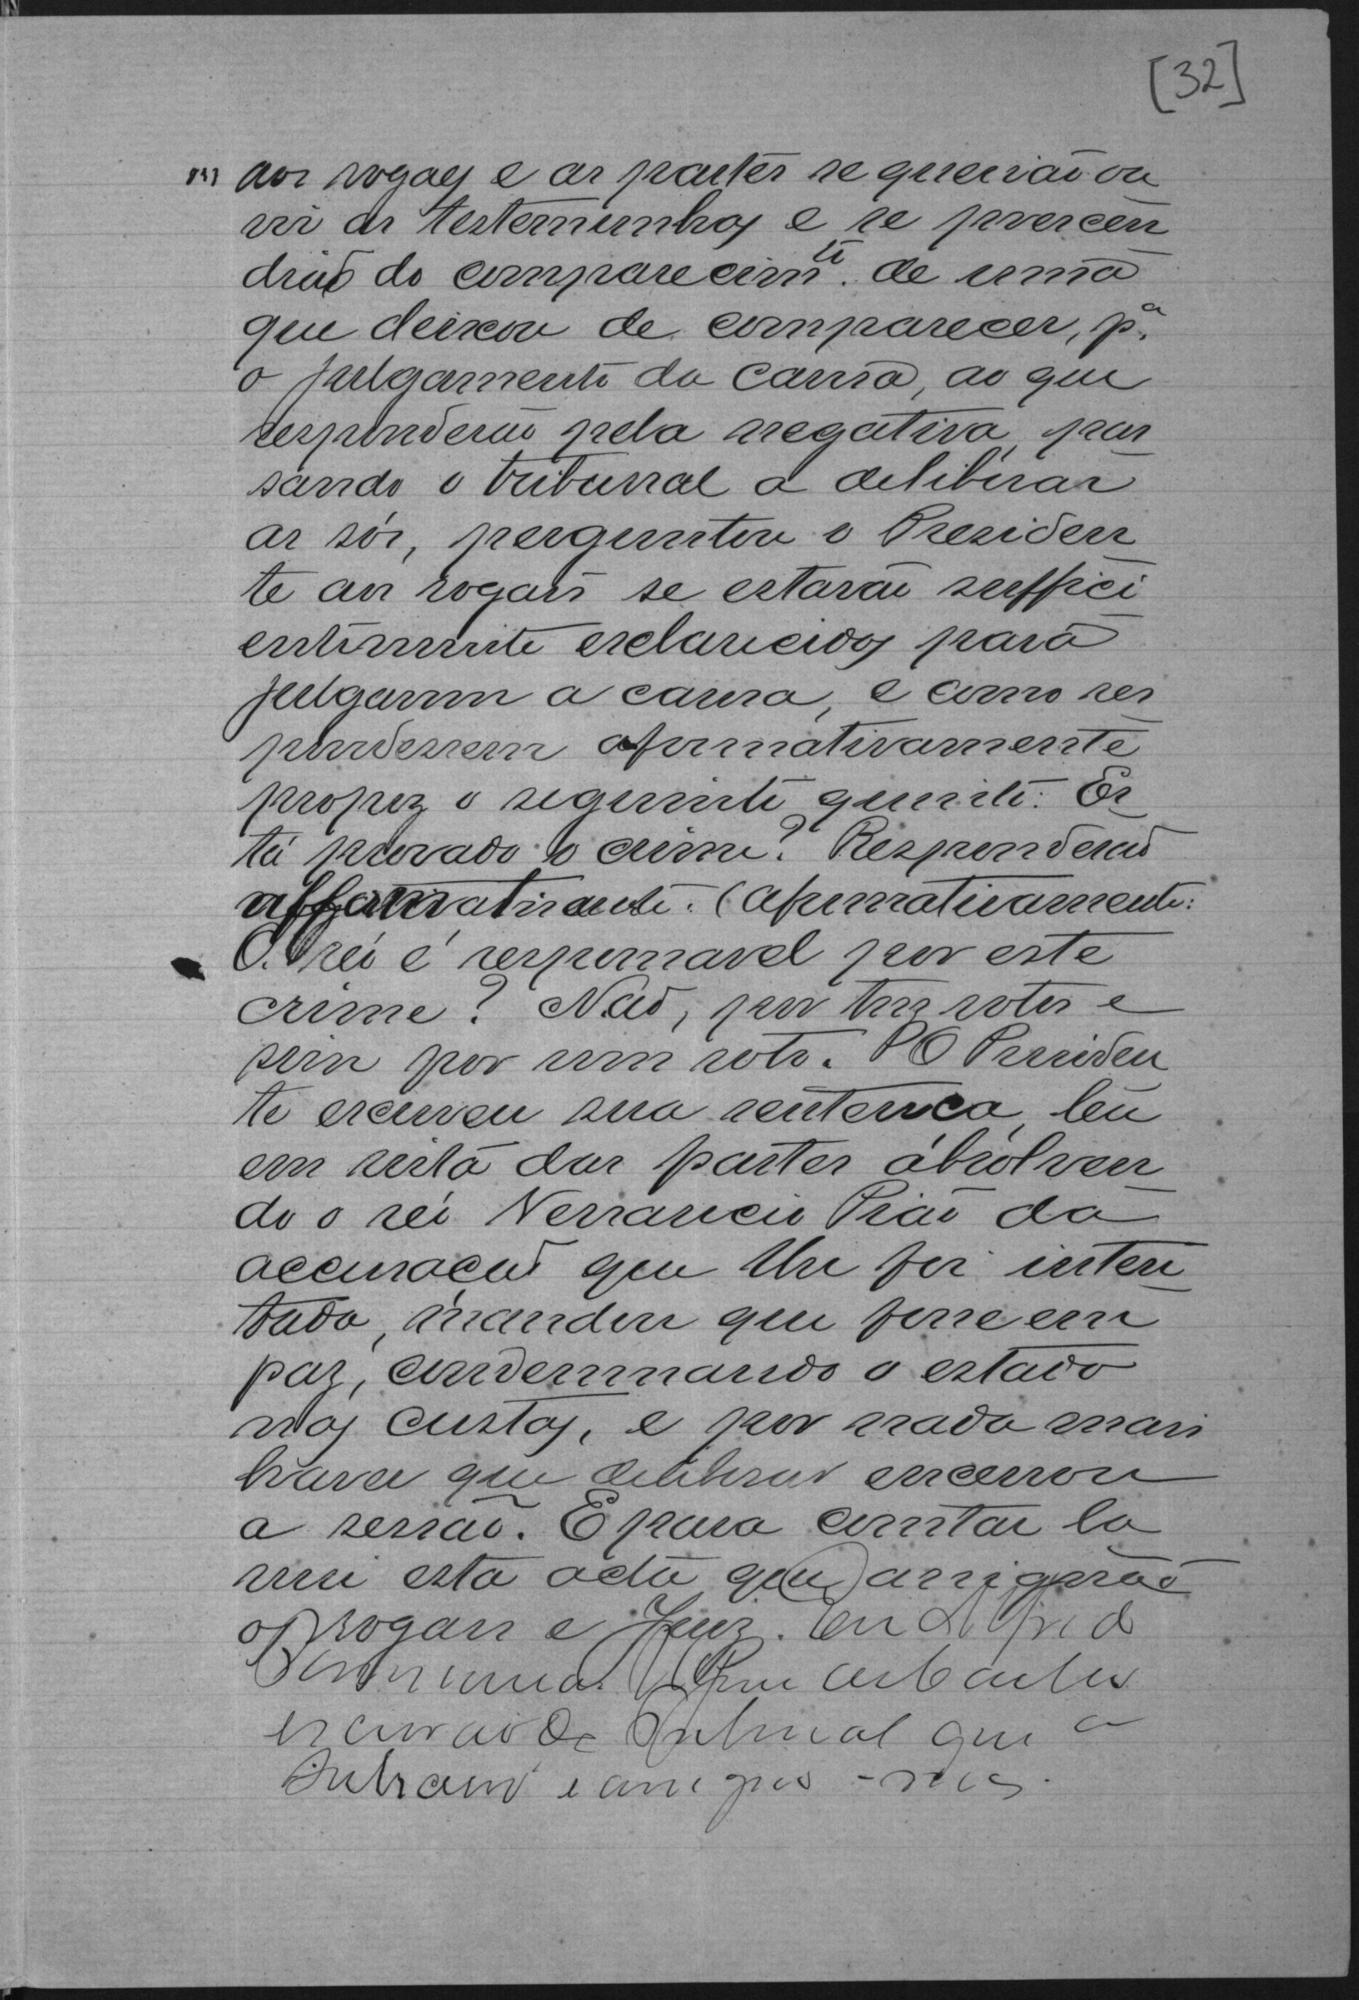 [32]
aos vogaes e as partes se queriaõ ou
vir as testemunhas e se prescen
diaõ do comparecim.to de uma
que deixou de comparecer, p.a
o julgamento da causa, ao que
responderaõ pela negativa, pas
sando o tribunal a deliberar
as sós, perguntou o Presiden
te aos vogaes se estavaõ suffici
entemente esclarecidos para
julgarem a causa, e como res
pondessem afirmativamente
propoz o seguinte quesito: Es
tá provado o crime? Responderaõ
affirmativamente. (afirmativamente:
O réo é responsavel por este
crime? Naõ, por tres votos e
sim por um voto. O Presiden
te escreveu sua sentença, leu
em vista das partes absolven
do o réo Piaõ da
accusaçaõ que lhe foi inten
tada, mandou que fosse em
paz, condemnando o estado
nas custas, e por nada mais
haver que deliberar encerrou
a sessaõ. E para constar la
vrei esta acta que assignaõ
os vogaes e Juiz. Eu Alfredo
escrivaõ do Tribunal que a